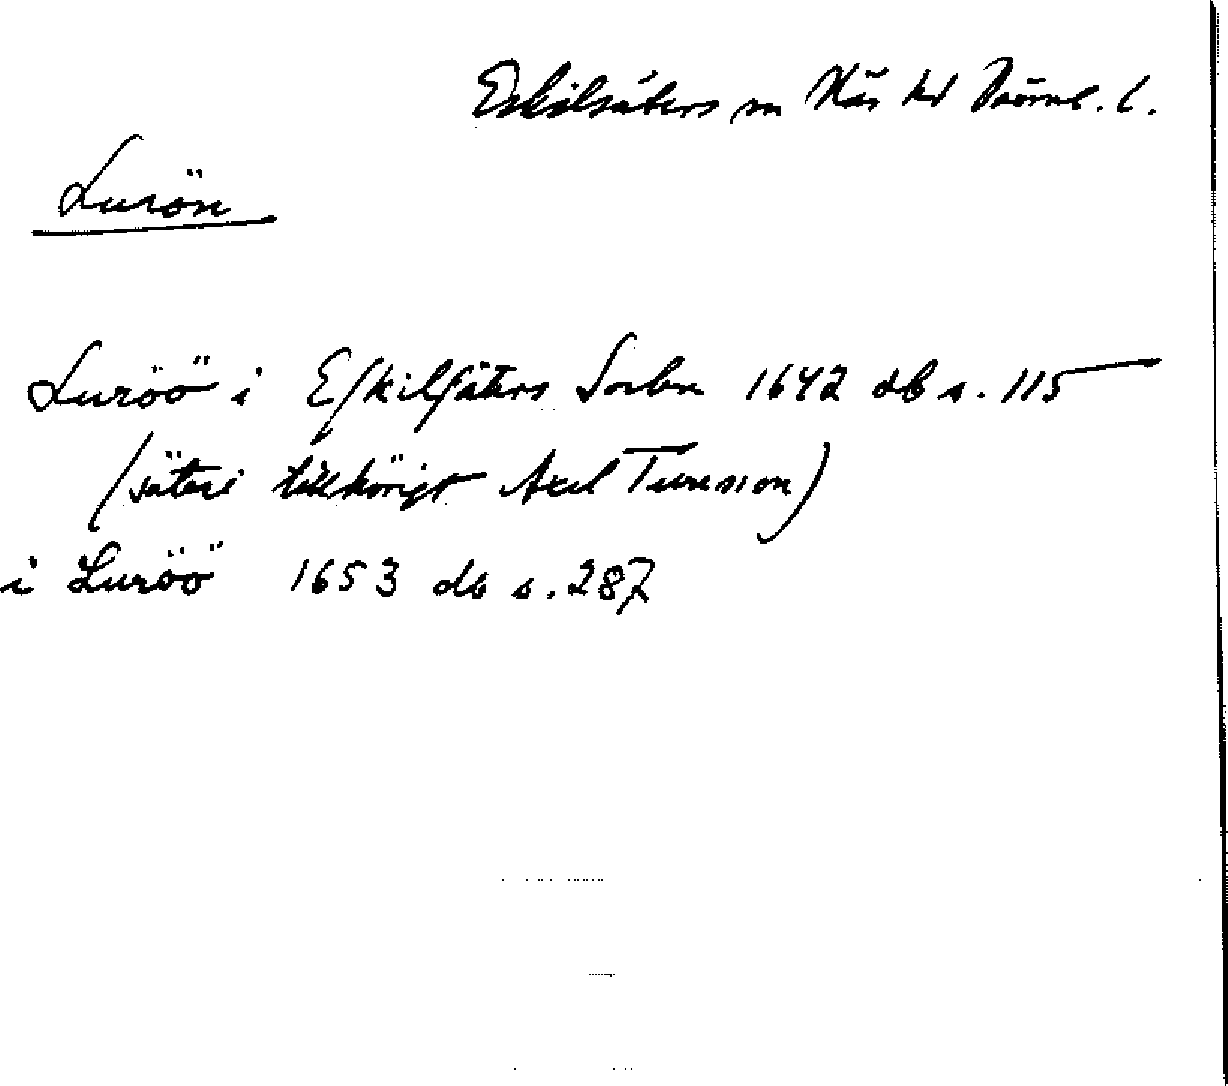 Eskilsäters sn Näs hd Värml. l.
Lurön
Luröö i Eſkilſäters Sochn 1642 db s. 115
(säteri tillhörigt Axel Turesson)
i Luröö 1653 db s. 287